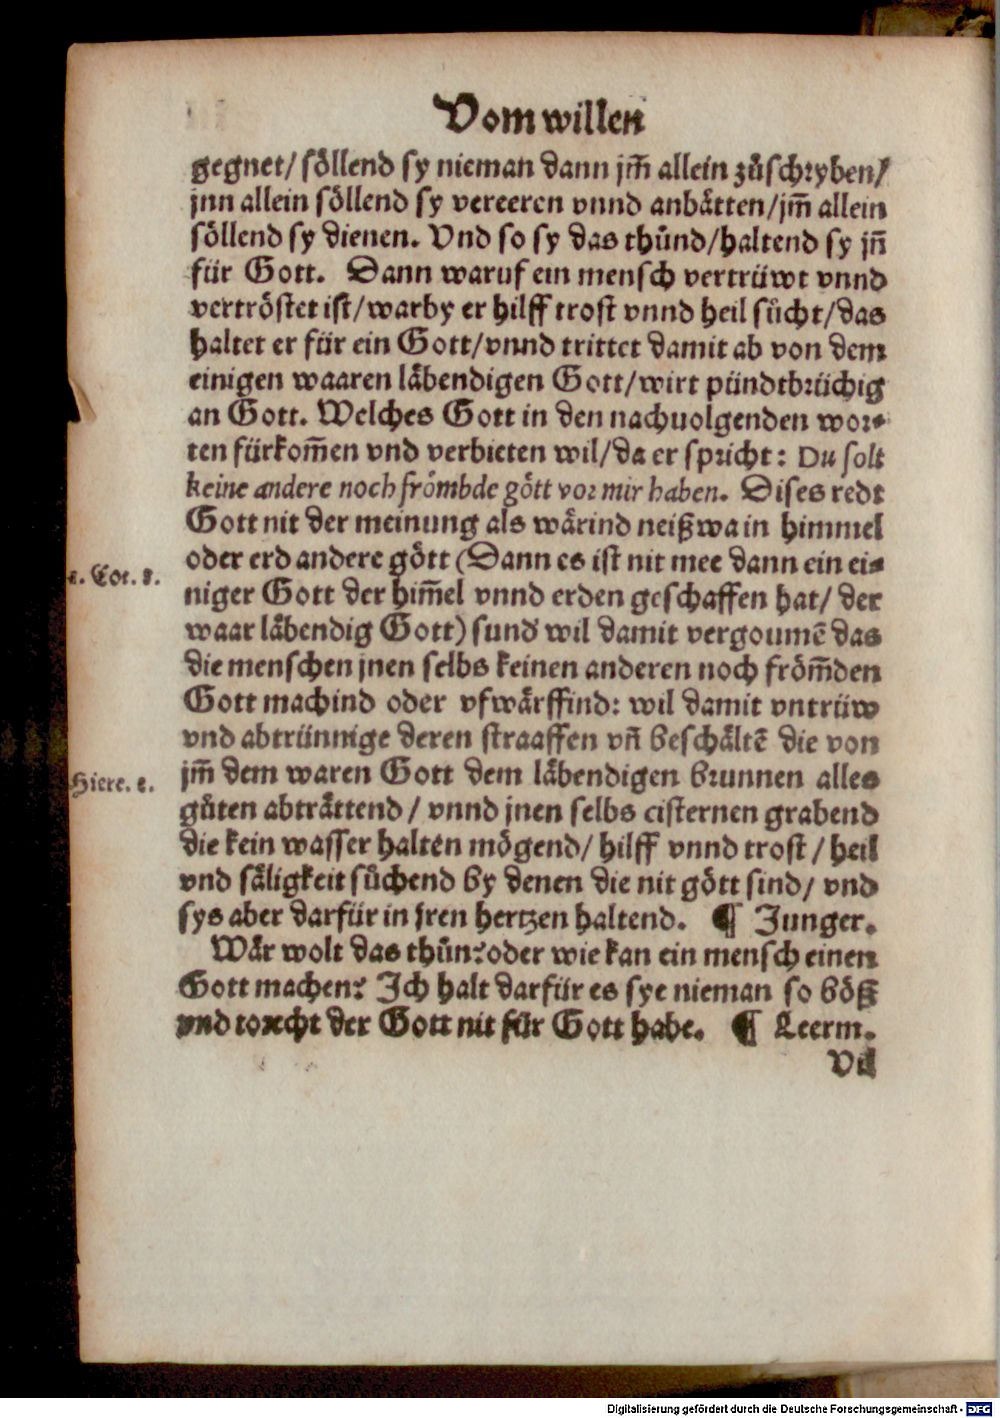 Vom willen
gegnet/ söllend sy nieman dann jm̃ allein zůschryben/
jnn allein söllend sy vereeren vnnd anbätten/jm̃ allein
söllend sy dienen. Vnd so sy das thůnd/haltend sy jñ
für Gott. Dann waruf ein mensch vertrüwt vnnd
vertröstet ist/warby er hilff trost vnnd heil sůcht/das
haltet er für ein Gott/vnnd trittet damit ab von dem
einigen waaren läbendigen Gott/wirt pündtbrüchig
an Gott. Welches Gott in den nachuolgenden wor-
ten fürkom̃en vnd verbieten wil/da er spricht: Du solt
keine andere noch frömbde gött vor mir haben. Dises redt
Gott nit der meinung als wärind neißwa in himmel
oder erd andere gött (Dann es ist nit mee dann ein ei-
1. Cor. 8.
niger Gott der him̃el vnnd erden geschaffen hat/ der
waar läbendig Gott) sund' wil damit vergoumẽ das
die menschen jnen selbs keinen anderen noch fröm̃den
Gott machind oder vfwärffind: wil damit vntrüw
vnd abtrünnige deren straaffen vñ beschältẽ die von
Hiere. 2.
jm̃ dem waren Gott dem läbendigen brunnen alles
gůten abträttend/ vnnd jnen selbs cisternen grabend
die kein wasser halten mögend/ hilff vnnd trost/ heil
vnd säligkeit sůchend by denen die nit gött sind/ vnd
sys aber darfür in jren hertzen haltend. ¶ Junger.
Wär wolt das thůn? oder wie kan ein mensch einen
Gott machen? Ich halt darfür es sye nieman so böß
vnd torecht der Gott nit für Gott habe. ¶ Leerm.
Vil
Digitalisierung gefördert durch die Deutsche Forschungsgemeinschaft - DFG